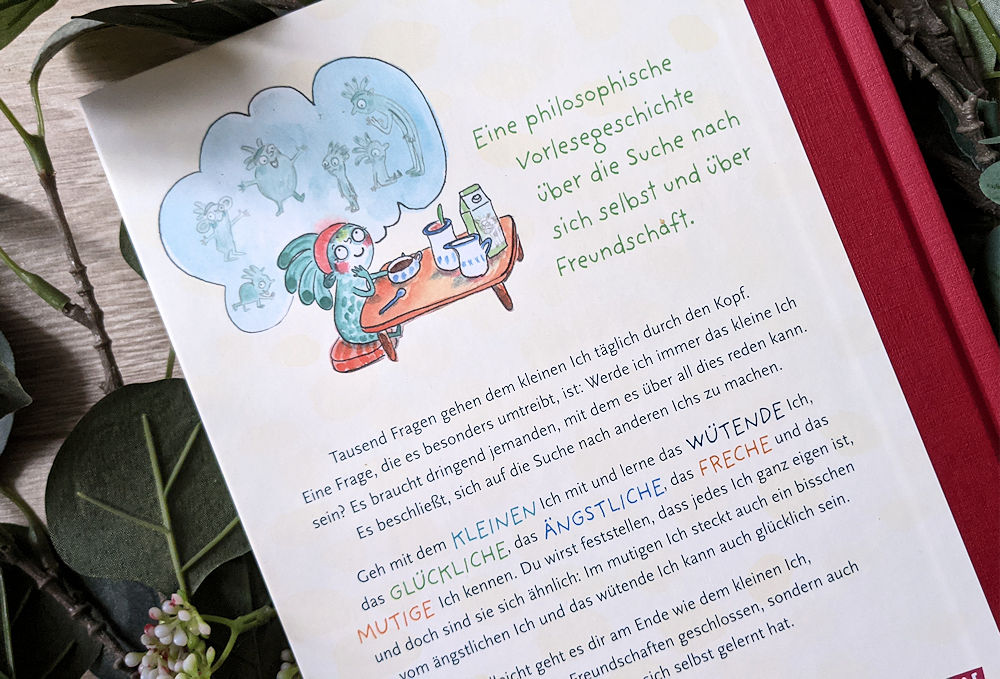 Eine philosophische
Vorlesegeschichte
über die Suche nach
sich selbst und über
Freundschaft.
Tausend Fragen gehen dem kleinen Ich täglich durch den Kopf.
Eine Frage, die es besonders umtreibt, ist: Werde ich immer das kleine Ich
sein? Es braucht dringend jemanden, mit dem es über all dies reden kann.
Es beschließt, sich auf die Suche nach anderen Ichs zu machen.
Geh mit dem KLEINEN Ich mit und lerne das WÜTENDE Ich,
das GLÜCKLICHE, das ÄNGSTLICHE, das FRECHE und das
MUTIGE Ich kennen. Du wirst feststellen, dass jedes Ich ganz eigen ist,
und doch sind sie sich ähnlich: Im mutigen Ich steckt auch ein bisschen
vom ängstlichen Ich und das wütende Ich kann auch glücklich sein.
geht es dir am Ende wie dem kleinen Ich,
Freundschaften geschlossen, sondern auch
sich selbst gelernt hat.